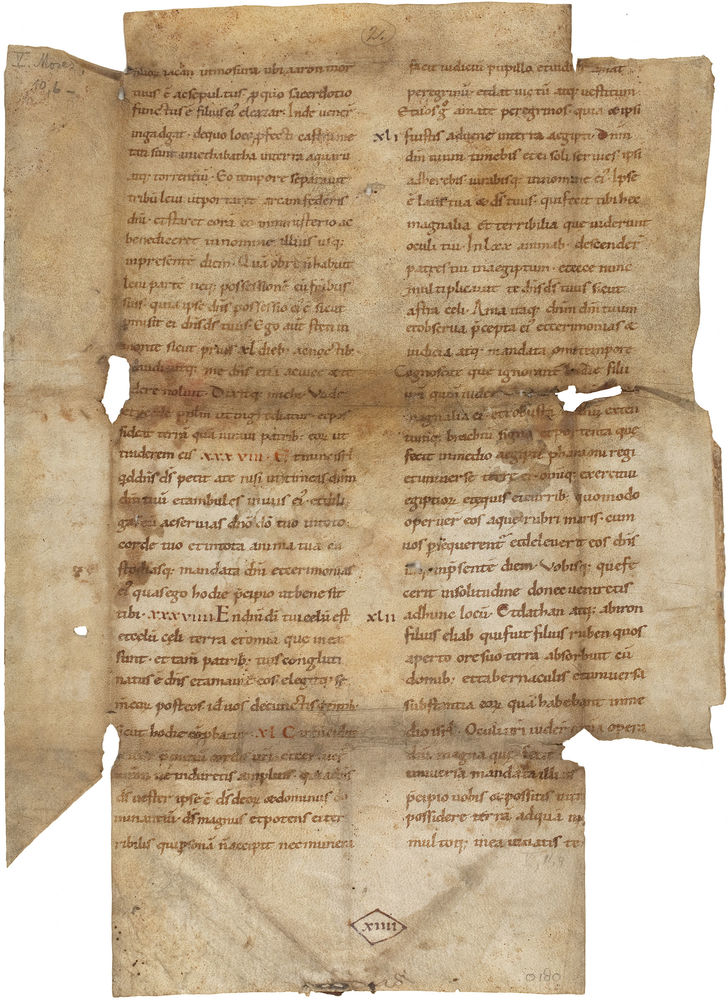 V. Moses
10,6 –
2.
iacan inmosera ubi aaron mor
tuus ē acsepultus ꝓ quo sacerdotio
functus ē filius ei eleazar. Inde uener
ingadgat. dequo loco ꝓfecti castra me
tati sunt iniethabatha interra aquarū
atq; torrentiū. Eo tempore separauit
tribū leui utportaret arcam federis
dn̄i. etstaret corā eo inministerio ac
benediceret innomine illius usq;
inpresentē diem. Quā obrē n̄ habuit
leui parte neq; possessionē cū fr̄ibus
suis. quia ipse dn̄s possessio ei ē sicut
ꝓmisit ei dn̄s ds̄ tuus. Ego aut̄ steti in
monte sicut prius xl dieb; acnoctib;
me dn̄s etiā acuice
noluit. Dixitq; michi. Vade
etp̄cede
sideat terrā quā iuraui patrib; eor̄ ut
traderem eis. xxxviii. Et nunc isrl̄
qd dn̄s ds̄ petit ate nisi uttimeas dn̄m
dm̄ tuū etambules inuiis ei. etdili
gas eū acseruias dn̄o dō tuo intoto
corde tuo etintota anima tua cu
stodiasq; mandata dn̄i etcerimonias
ei quas ego hodie p̄cipio utbene sit
tibi. xxxviiii. En dn̄i dī tui celū est
etcelū celi terra etomia que inea
sunt. et tam̄ patrib; tuis congluti
natus ē dn̄s etamauit eos elegitq; se
m̄ eor̄ posteos. id uos decunctis gentib;
sicut hodie cōphatur. xl. Circumcidite
p̄putiū cordis
nē induretis amplius. quia dn̄s
ds̄ uester ipse ē ds̄ deor̄ &dominus do
minantiū. ds̄ magnus etpotens etter
ribilis quipsonā n̄ accipit nec munera
facit iudiciū pupillo etuidue amat
peregrinū etdat uictū atq; uestitum.
Et uos g̊ amate peregrinos. quia &ipsi
xli fuistis aduene interra aegipti. Dn̄m
dm̄ tuum timebis etei soli seruies ipsi
adherebis iurabisq; innomine ei. Ipse
ē laus tua & ds̄ tuus. quifecit tibi hec
magnalia et terribilia que uiderunt
oculi tui. Inlxx animab; descenderт̄
patres tui inaegiptum. etecce nunc
multiplicauit te dn̄s ds̄ tuus sicut
astra celi. Ama itaq; dn̄m dm̄ tuum
etobserua p̄cepta ei etcerimonias &
iudicia atq; mandata omni tempore
Cognoscite que ignorant hodie filii
magnalia ei etrobustā exten
tumq; brachiū signa etportenta que
fecit inmedio aegipti pharaoni regi
etuniuerse terre ei. omīq; exercitui
egiptior̄ etequis eicurrib; quomodo
operuer̄ eos aque rubri maris. cum
uos p̄sequerent̄ etdeleuerit eos dn̄s
inp̄sentē diem. Vobisq; quefe
cerit insolitudine donec ueniretis
xlii adhunc locū. Etdathan atq; abiron
filiis eliab quifuit filius ruben quos
aperto ore suo terra absorbuit cū
domib; ettabernaculis etuniuersa
substantia eor̄ quā habebant inme
dio isrl̄. Oculi uiri uider̄ opera
dn̄i magna que fecit
uniuersa mandata illius
p̄cipio uobis &possitis
possidere terrā adquā in
multoq; inea uiuatis te
11,9
xiiii
0180